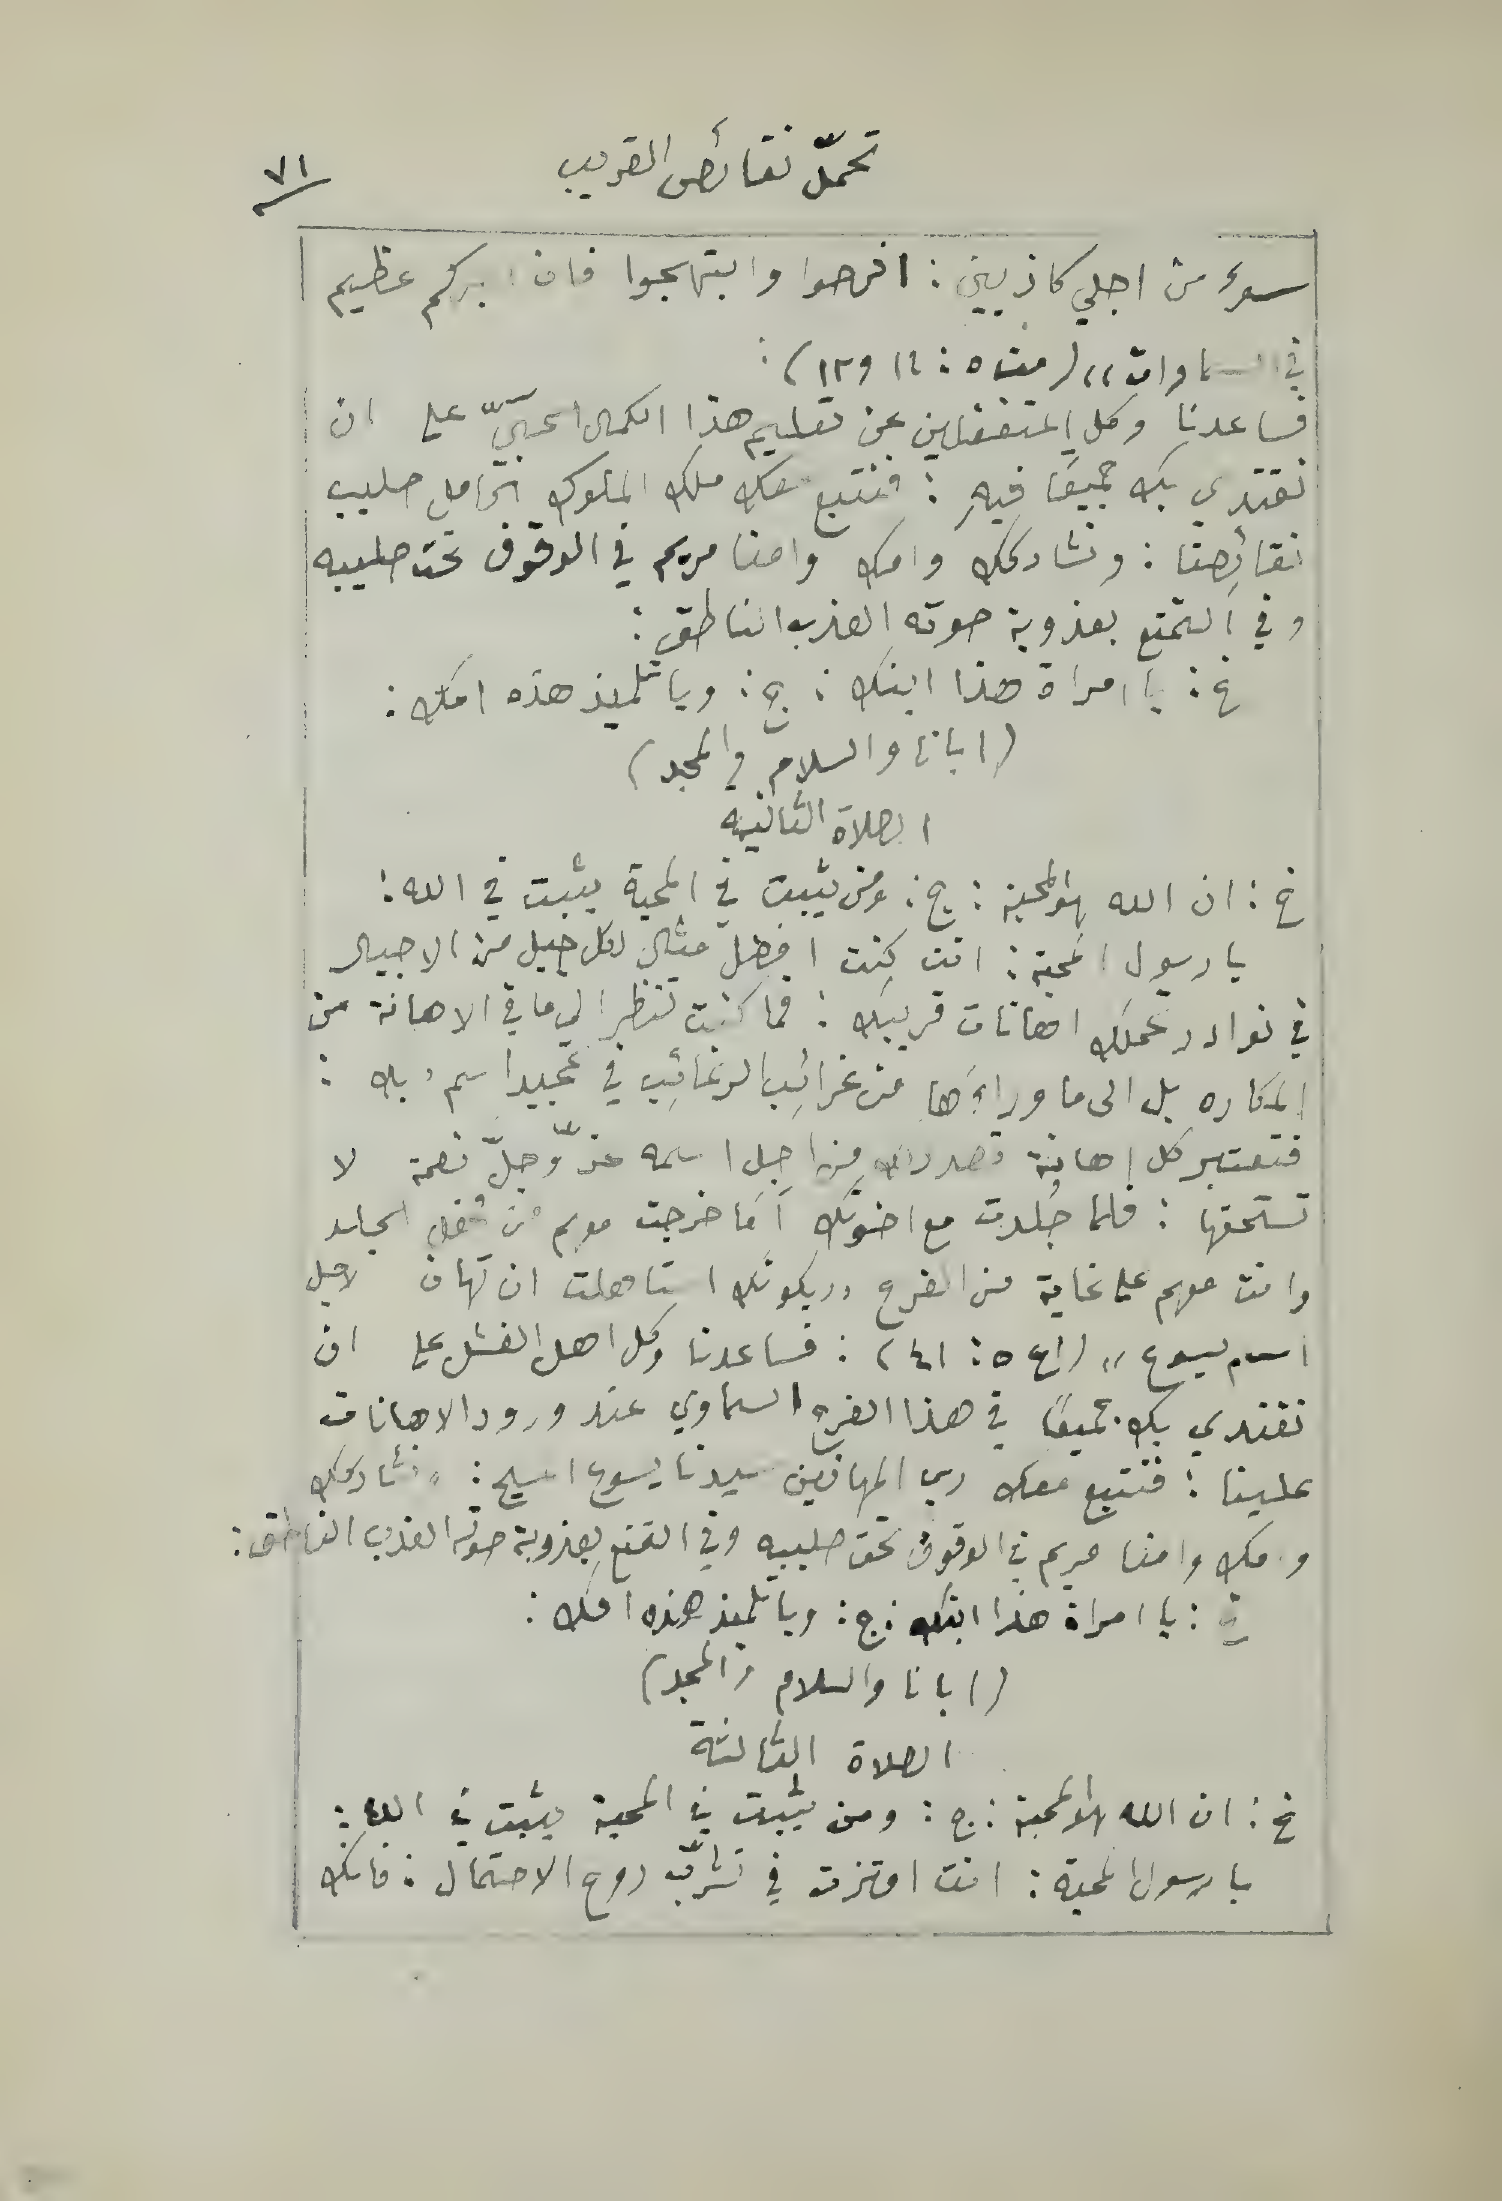 تحمّل نقائص القريب
٧١
سوء من اجلي كاذبين : افرحوا وابتهجوا فان اجركم عظيم
في السماوات ،، ( مت ٥ : ١١ و ١٢ ) :
فساعدنا وكل المتغفلين عن تعليم هذا الكمال الحبّيّ على ان
نقتدي بك جميعًا فيه : فنتبع معك ملك الملوك الحامل صليب
نقائصنا : ونشاركك وامك وامنا مريم في الوقوف تحت صليبه
وفي التمتع بعذوبة صوته العذب الناطق :
خ : يا امراة هذا ابنك : ج : ويا تلميذ هذه امك :
( ابانا والسلام والمجد )
الصلاة الثانيه
خ : ان الله لهو المحبة : ج : ومن يثبت في المحبة يثبت في الله :
يا رسول المحبة : انت كنت افضل مثال لكل جيل من الاجيال
في نوادر تحملك اهانات قريبك : فما كنت تنظر الى ما في الاهانة من
المكاره بل الى ما وراءها من غرائب الرغائب في تمجيد اسم ربك :
فتعتبر كل اهانة من اجل اسمه عزّ وجلّ نعمة لا
تستحقها : فلما جُلدت مع اخوتك خرجت معهم من الجلد
وانت معهم على غاية من الفرح ,, بكونك استاهلت ان تهان لاجل
اسم يسوع ,, ( اع ٥ : ٤١ ) : فساعدنا وكل اهل الفشل على ان
نقتدي بك جميعًا في هذا الفرح السماوي عند ورود الاهانات
علينا : فنتبع معك رب المهانين سيدنا يسوع المسيح : ونشاركك
وامك وامنا مريم في الوقوف تحت صليبه وفي التمتع بعذوبة صوته العذب الناطق :
خ : يا امراة هذا ابنك : ج : ويا تلميذ هذه امك :
( ابانا والسلام والمجد )
الصلاة الثالثة
خ : ان الله لهو المحبة : ج : ومن يثبت في المحبة يثبت في الله :
يا رسول المحبة : انت امتزت في تشرّب روح الاحتمال : فانك